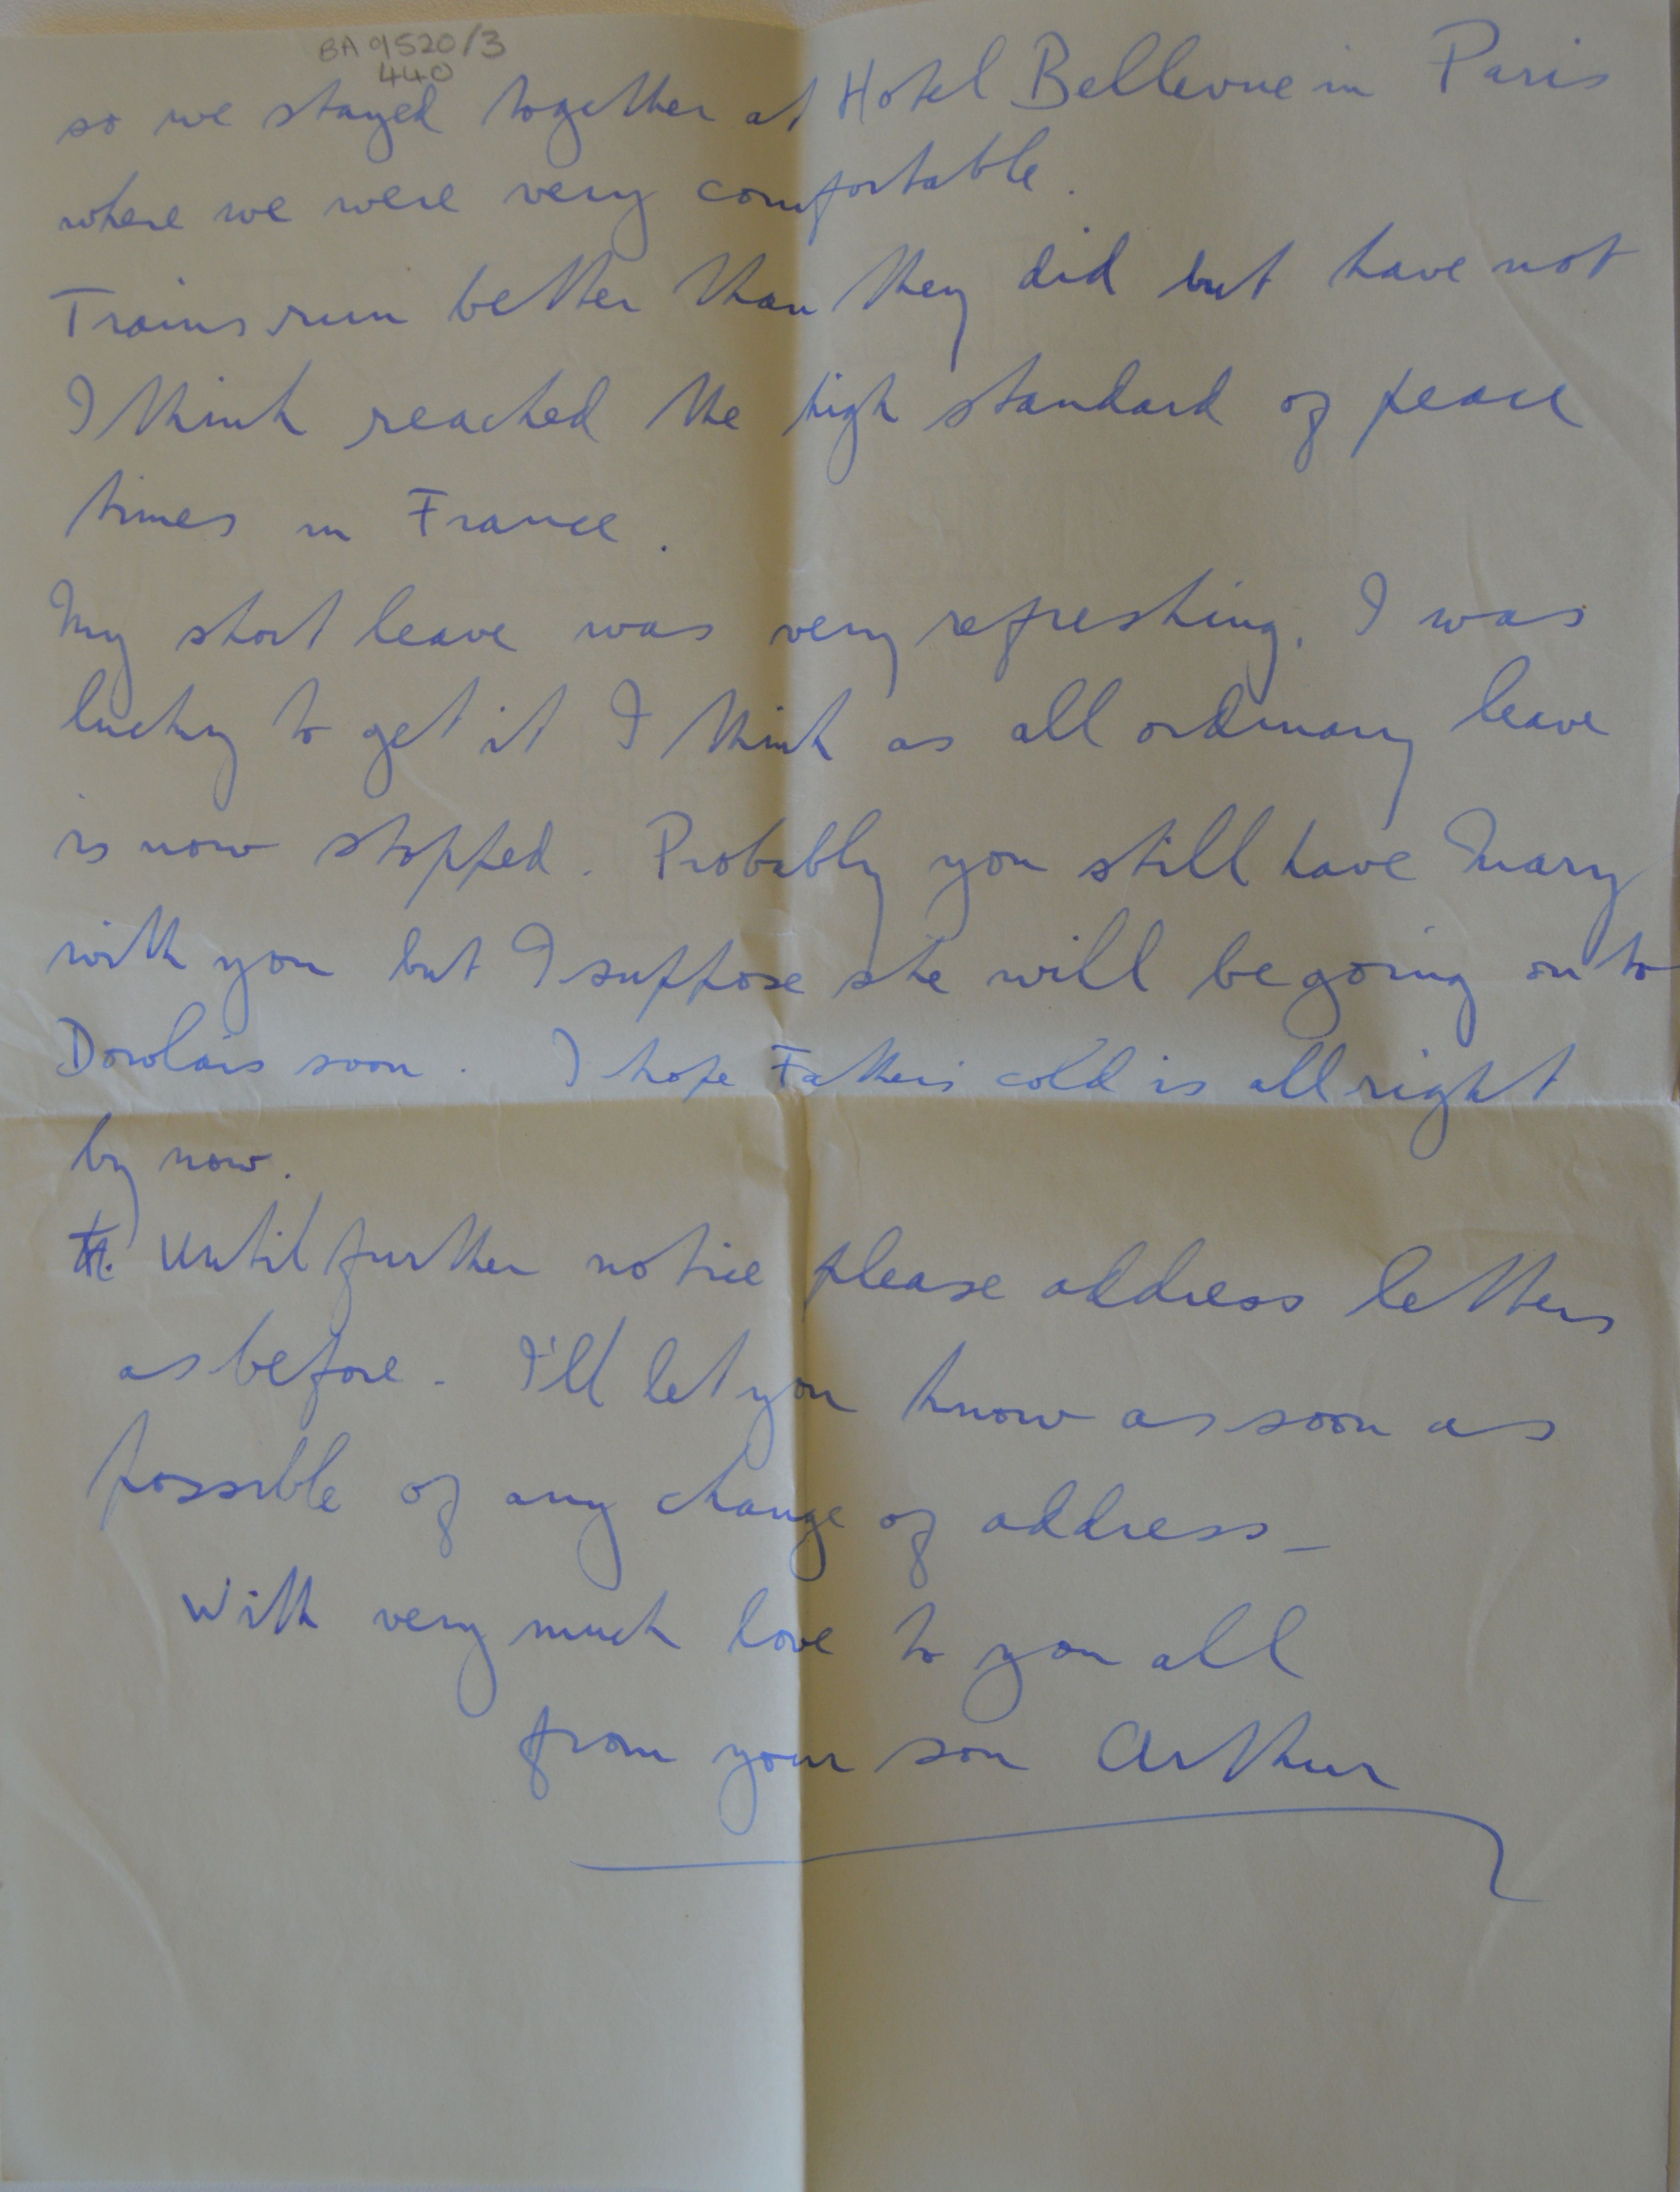 BA 9520/3
440
so we stayed together at Hotel Bellevue in Paris
where we were very comfortable.
Trains run better than they did but have not
I think reached the high standard of peace
times in France.
My short leave was very refreshing. I was
lucky to get it I think as all ordinary leave
is now stopped. Probably you still have Mary
with you but I suppose she will be going on to
Dowlais soon. I hope Fathers cold is all right
by now.
Until further notice please address letters
as before. I'll let you know as soon as
possible of any change of address_
With very much love to you all
from your son Arthur